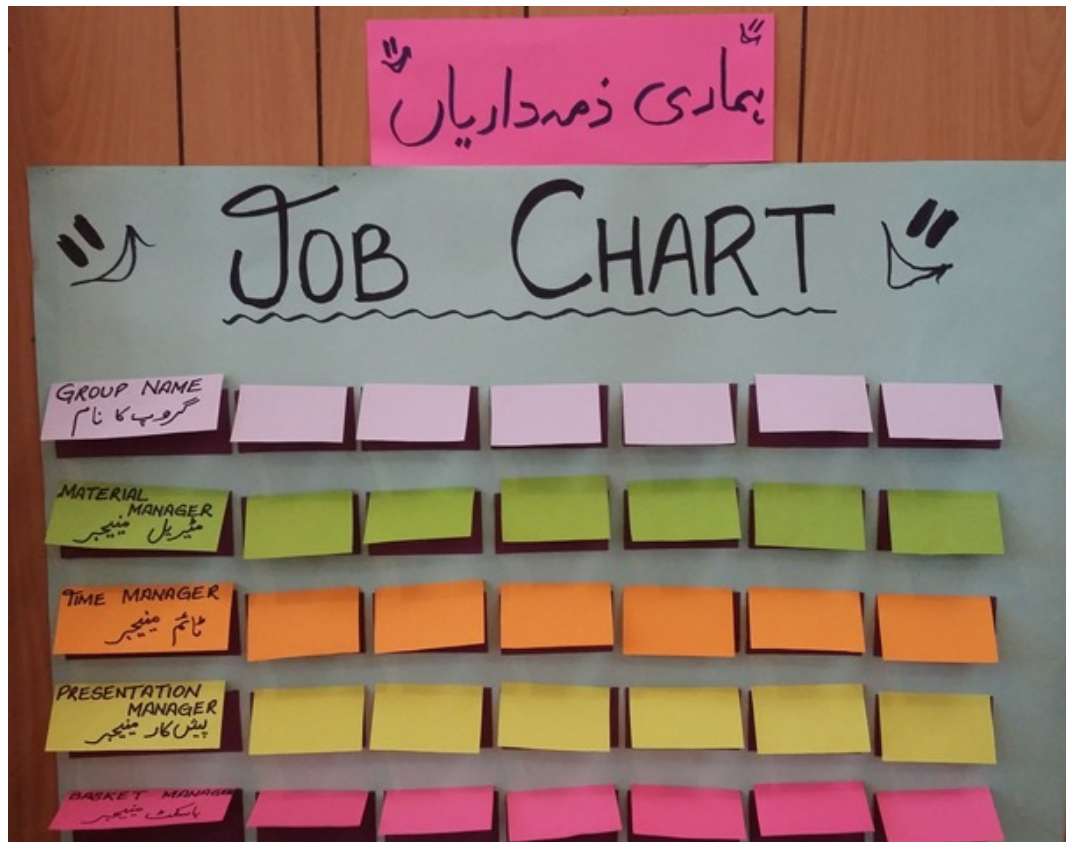 ہماری ذمہ داریاں
JOB CHART
GROUP NAME
گروپ کا نام
MATERIAL
MANAGER
مٹیریل مینیجر
TIME MANAGER
ٹائم مینیجر
PRESENTATION
MANAGER
پیش کار مینیجر
BASKET MANAGER
باسکٹ مینیجر